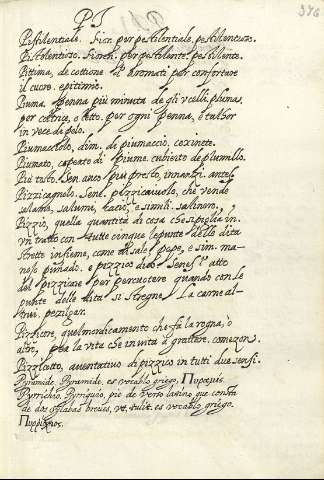 PI
376
Pistilentiale. Fioren. per pestilentiale, pestilentuzo.
Pistilentuzo. Fioren. per pestilente. pestilente.
Pittima, de cottione d'aromati per confortare
il cuore. epitima.
Piuma, penna più minuta de gli vcelli. plumas.
per coltrice, o letto. per ogni penna, e talhor
in vece de pelo.
Piumacciolo, dim. de piumaccio, coxinete.
Piumato, capeato di piume. cubierto de plumillo.
Più tosto. Sen. auco più presto, innanzi. antes.
Pizzicagnolo. Sene. pizzicaiuolo, che vende
salame, salumi, cacio, e simili. salinero.
Pizzico, quella quantità di cosa che si piglia in
vn tratto con tutte cinque le punte delle dita
strette insieme, come di sale, pepe, e sim. ma-
nojo puñado. e pizzico dicon Senesi l' atto
del pizzicare per percuotere quando con le
punte delle dita si stregne la carne al-
trui. pezilgar.
Pizzicore, quel mordicamento che fà la rogna, o
altro, per la vita che inuita à grattare. comezon.
Pizzicotto, aumentativo di pizzico in tutti due sensi.
Pyramide, Pyramide, es vocablo griego, Πυραμις.
Pyrrichio, Pyriqueo, piè de verso latino que consta
de dos sylabas breues, vt, tulit. es vocablo griego.
Πυρρίχιος.